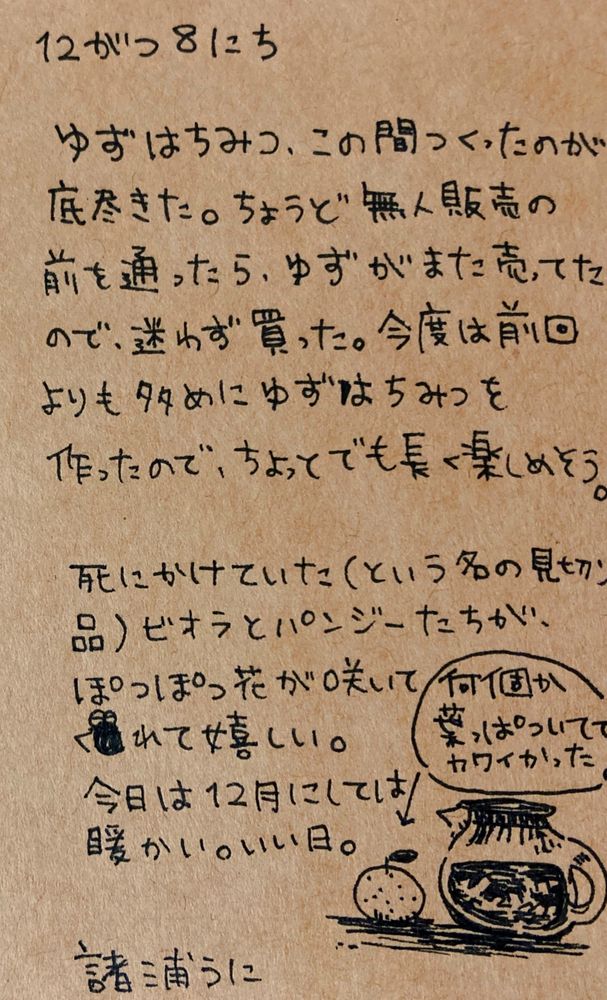 12がつ8にち
ゆずはちみつ、この間つくったのが
底尽きた。ちょうど無人販売の
前を通ったら、ゆずがまた売ってた
ので、迷わず買った。今度は前回
よりも多めにゆずはちみつを
作ったので、ちょっとでも長く楽しめそう。
死にかけていた(という名の見切り
品)ビオラとパンジーたちが、
ぽつぽつ花が咲いて
くれて嬉しい。
今日は12月にしては
暖かい。いい日。
何個か
葉っぱついてて
カワイかった。
諸浦うに